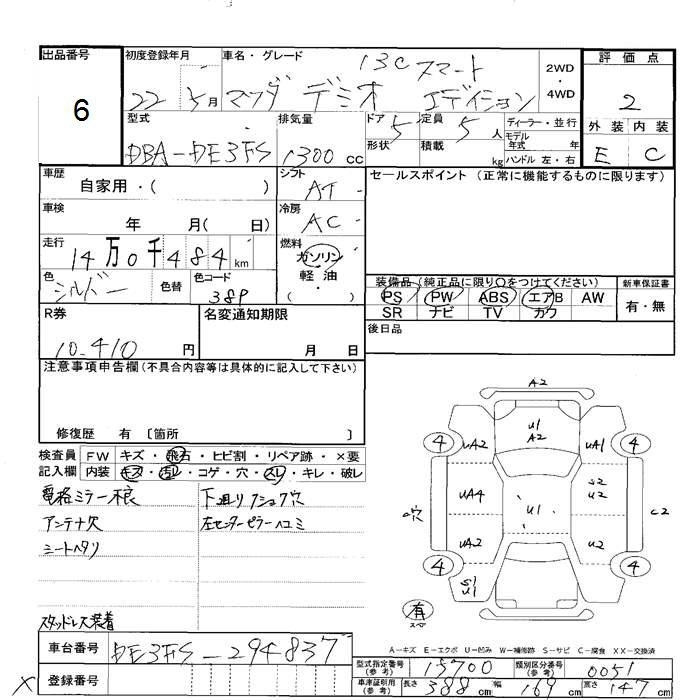 出品番号
6
初度登録年月
22 5月
車名・グレード
13C スマート
マツダ デミオ エディション
2WD
・
4WD
評価点
2
外装 内装
E C
型式
DBA-DE3FS
排気量
1300 cc
ドア 5
形状
定員 5 人
積載 kg
ディーラー・並行
モデル年式 年
ハンドル 左・右
車歴
自家用・( )
シフト
AT
車検
年 月( 日)
冷房
AC
走行
14万0千484km
燃料
ガソリン
軽油
( ・ )
色
シルバー
色替
色コード
38P
R券
10.410 円
名変通知期限
月 日
セールスポイント (正常に機能するものに限ります)
装備品 (純正品に限り○をつけてください)
PS PW ABS エアB AW
SR ナビ TV カワ
新車保証書
有・無
後日品
注意事項申告欄(不具合内容等は具体的に記入して下さい)
修復歴 有 〔箇所 〕
検査員記入欄
FW キズ・飛石・ヒビ割・リペア跡・×要
内装 キズ・汚レ・コゲ・穴・スレ・キレ・破レ
電格ミラー不良
下廻り
穴
アンテナ穴
左センターピラーヘコミ
シートヘタリ
スタッドレス装着
A2
U1
A2
4 UA2 UA1 4
S2
U2
UA4
U1
穴
C2
UA2 U2
4 4
S1
U1
有
スペア
A-キズ E-エクボ U-凹み W-補修跡 S-サビ C-腐食 XX-交換済
車台番号
DE3FS-294837
登録番号
X
型式指定番号(参考)
15700
類別区分番号(参考)
0051
車庫証明用(参考)
長さ 388 cm 幅 169 cm 高さ 147 cm